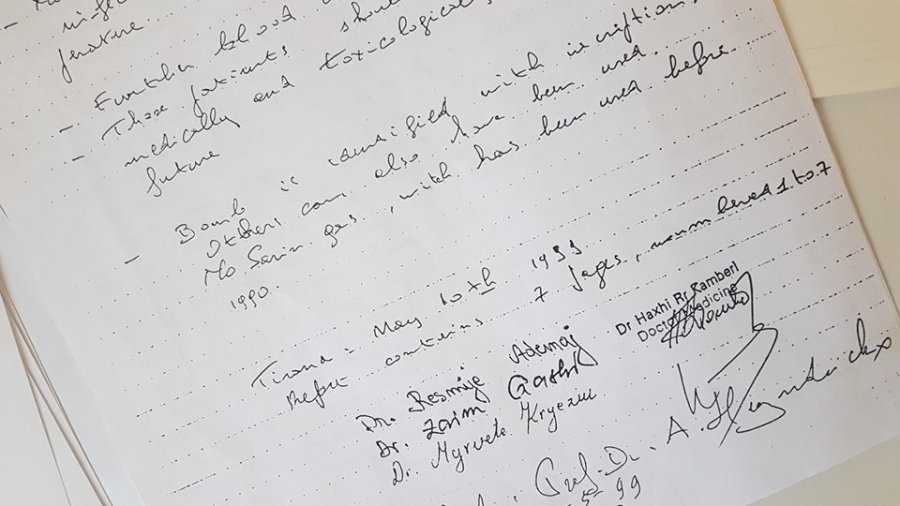 future
- Further blood
- These patients should
medically and toxicological
future
- Bomb is identified with inscriptions.
Others can also have been used.
No Sarin gas, witch has been used before
1990.
Tirana - May 10th 1999
Report contains 7 pages, numbered 1 to 7
Dr Haxhi Rr Kamberi
Doctor Medicine
Dr. Resmije Ademaj
Dr. Zaim Gashi
Dr. Myrvete Kryeziu
Prof. Dr. A. Heyndrickx
99